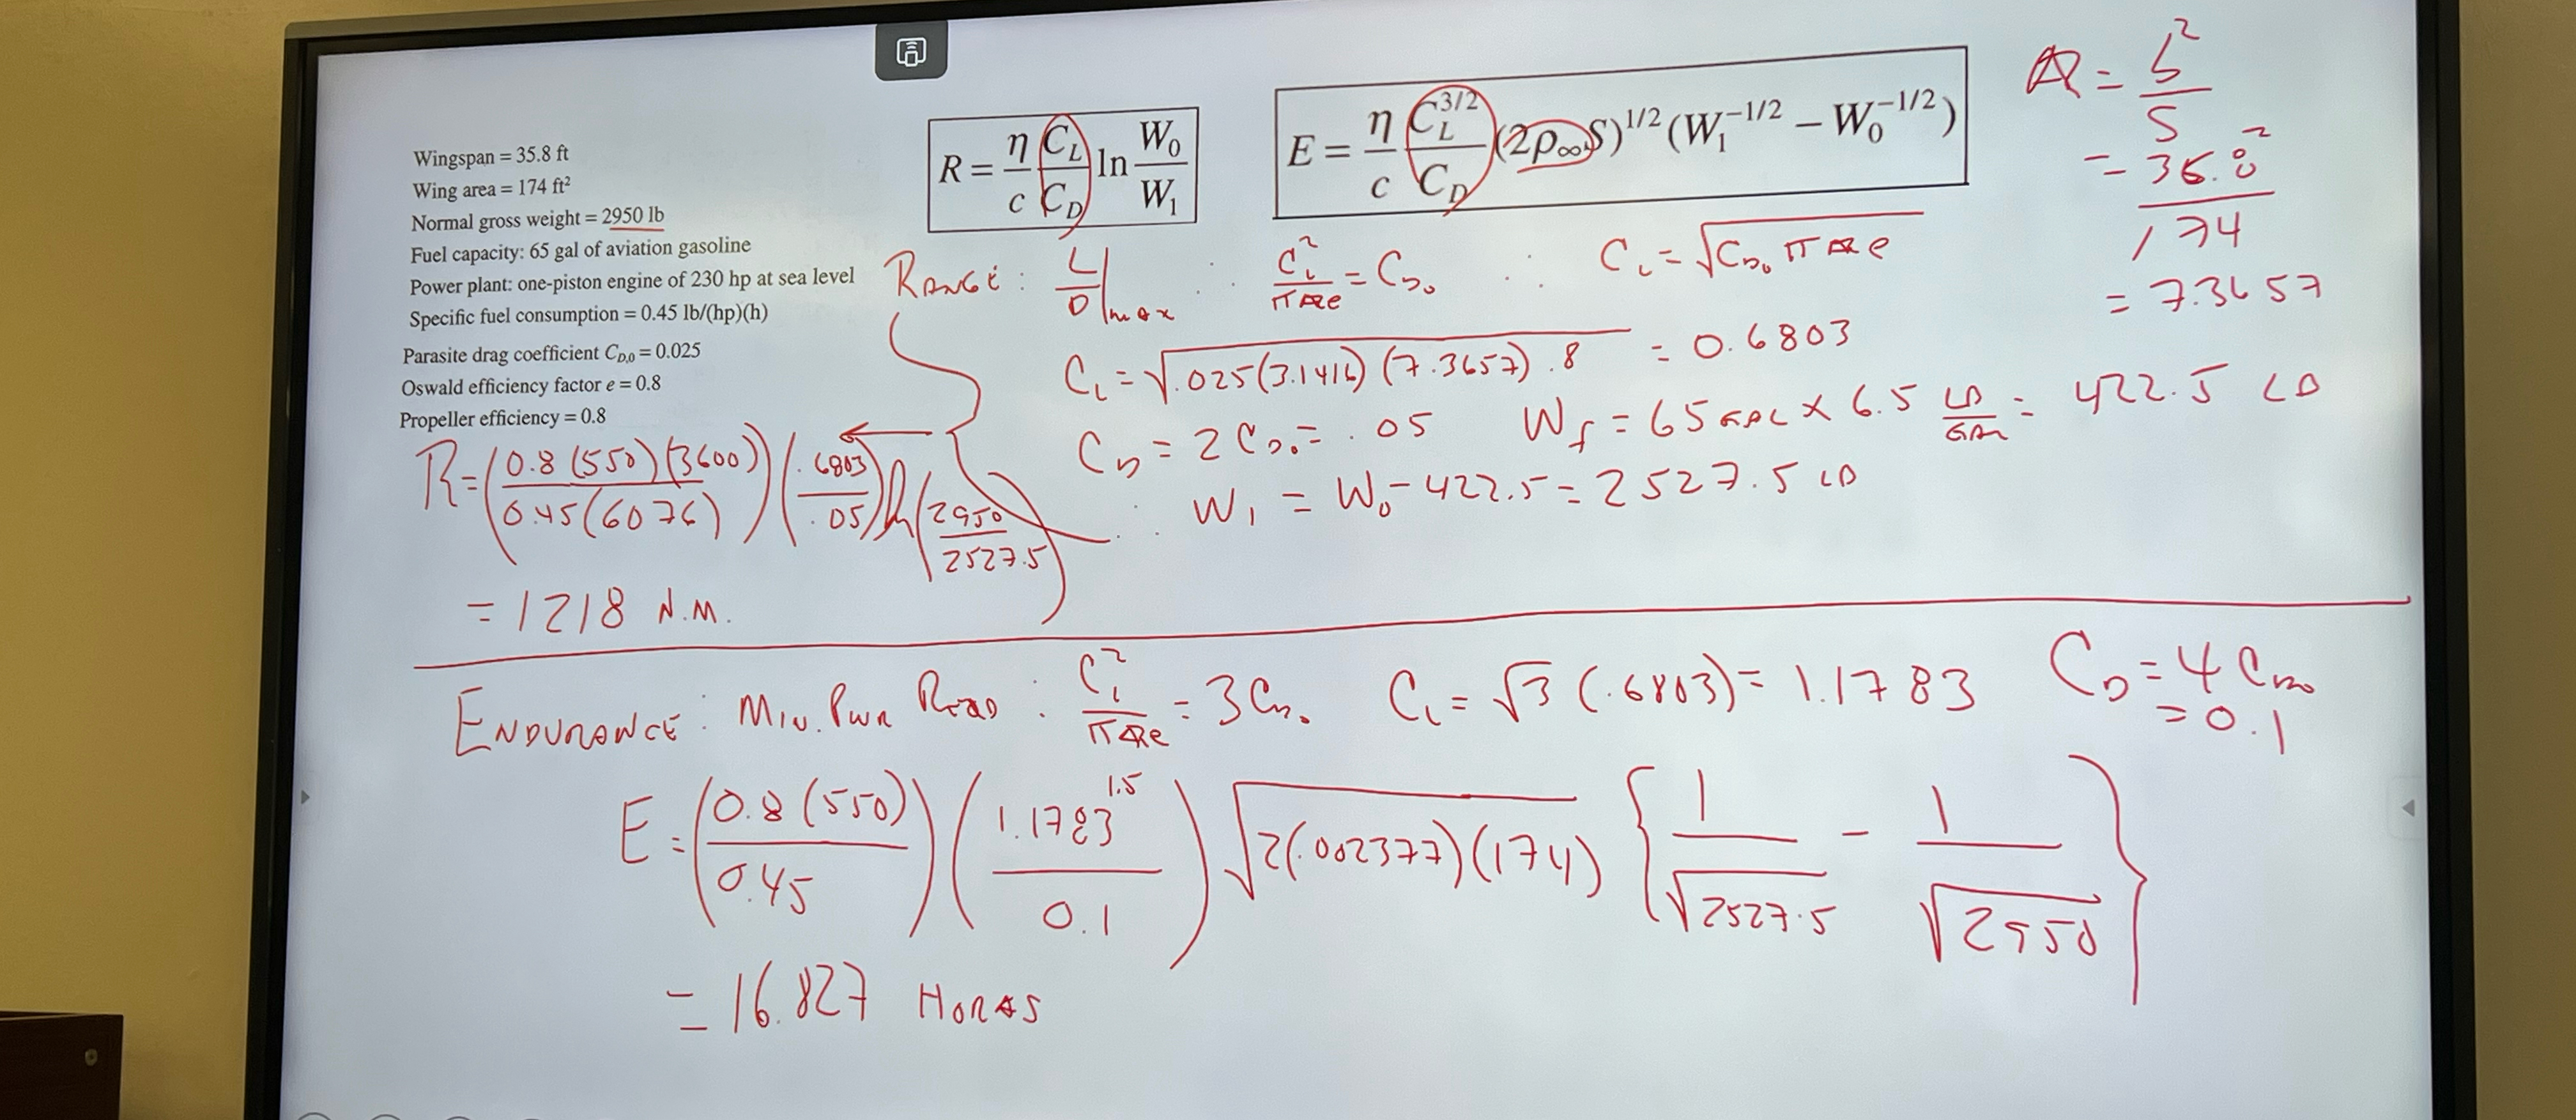 Wingspan = 35.8 ft
Wing area = 174 ft²
Normal gross weight = 2950 lb
Fuel capacity: 65 gal of aviation gasoline
Power plant: one-piston engine of 230 hp at sea level
Specific fuel consumption = 0.45 lb/(hp)(h)
Parasite drag coefficient C_{D,0} = 0.025
Oswald efficiency factor e = 0.8
Propeller efficiency = 0.8
R = \frac{η}{c} \frac{C_L}{C_D} ln \frac{W_0}{W_1}
E = \frac{η}{c} \frac{C_L^{3/2}}{C_D} (2ρ_∞S)^{1/2} (W_1^{-1/2} − W_0^{-1/2})
AR = \frac{b^2}{S}
= \frac{35.8^2}{174}
= 7.3657
RANGE: \frac{L}{D}|_{max} ∴ \frac{C_L^2}{πARe} = C_{D_0} ∴ C_L = \sqrt{C_{D_0} πARe}
C_L = \sqrt{.025(3.1416)(7.3657).8} = 0.6803
C_D = 2C_{D_0} = .05 W_f = 65 GAL × 6.5 \frac{LB}{GAL} = 422.5 LB
∴ W_1 = W_0 - 422.5 = 2527.5 LB
R = (\frac{0.8(550)(3600)}{0.45(6076)})(\frac{.6803}{.05}) ln(\frac{2950}{2527.5})
= 1218 N.M.
ENDURANCE: MIN. PWR REQD: \frac{C_L^2}{πARe} = 3C_{D_0} C_L = \sqrt{3}(.6803) = 1.1783 C_D = 4C_{D_0}
= 0.1
E = (\frac{0.8(550)}{0.45})(\frac{1.1783^{1.5}}{0.1})\sqrt{2(.002377)(174)} {\frac{1}{\sqrt{2527.5}} - \frac{1}{\sqrt{2950}}}
= 16.827 HORAS